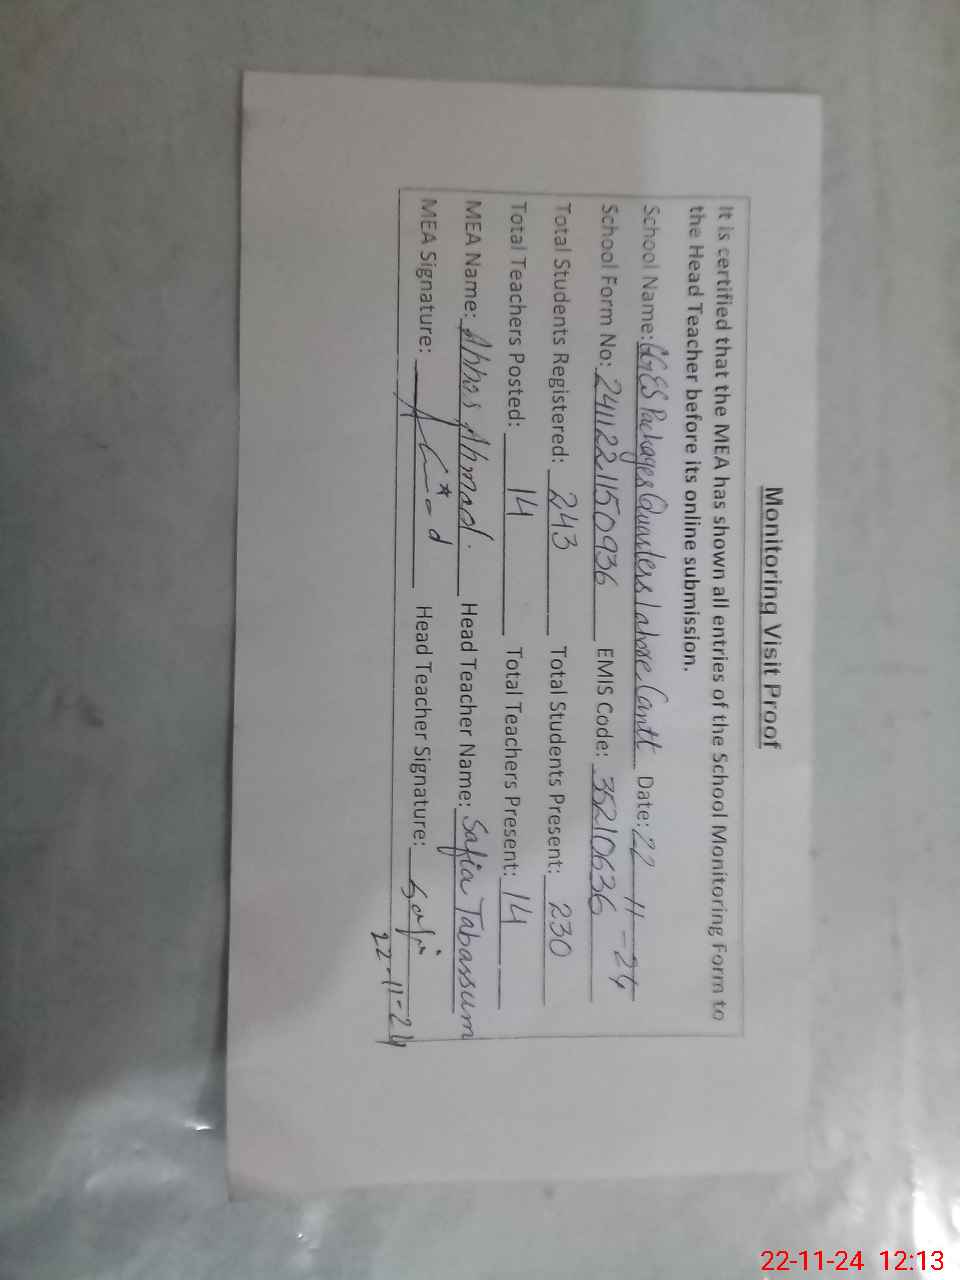 Monitoring Visit Proof
It is certified that the MEA has shown all entries of the School Monitoring Form to
the Head Teacher before its online submission.
School Name: GGES Packages Quarters Lahore Cantt Date: 22-11-24
School Form No: 2411221150936 EMIS Code: 35210636
Total Students Registered: 243 Total Students Present: 230
Total Teachers Posted: 14 Total Teachers Present: 14
MEA Name: Abbas Ahmad. Head Teacher Name: Safia Tabassum
MEA Signature: Head Teacher Signature: Safia
22-11-24
22-11-24 12:13